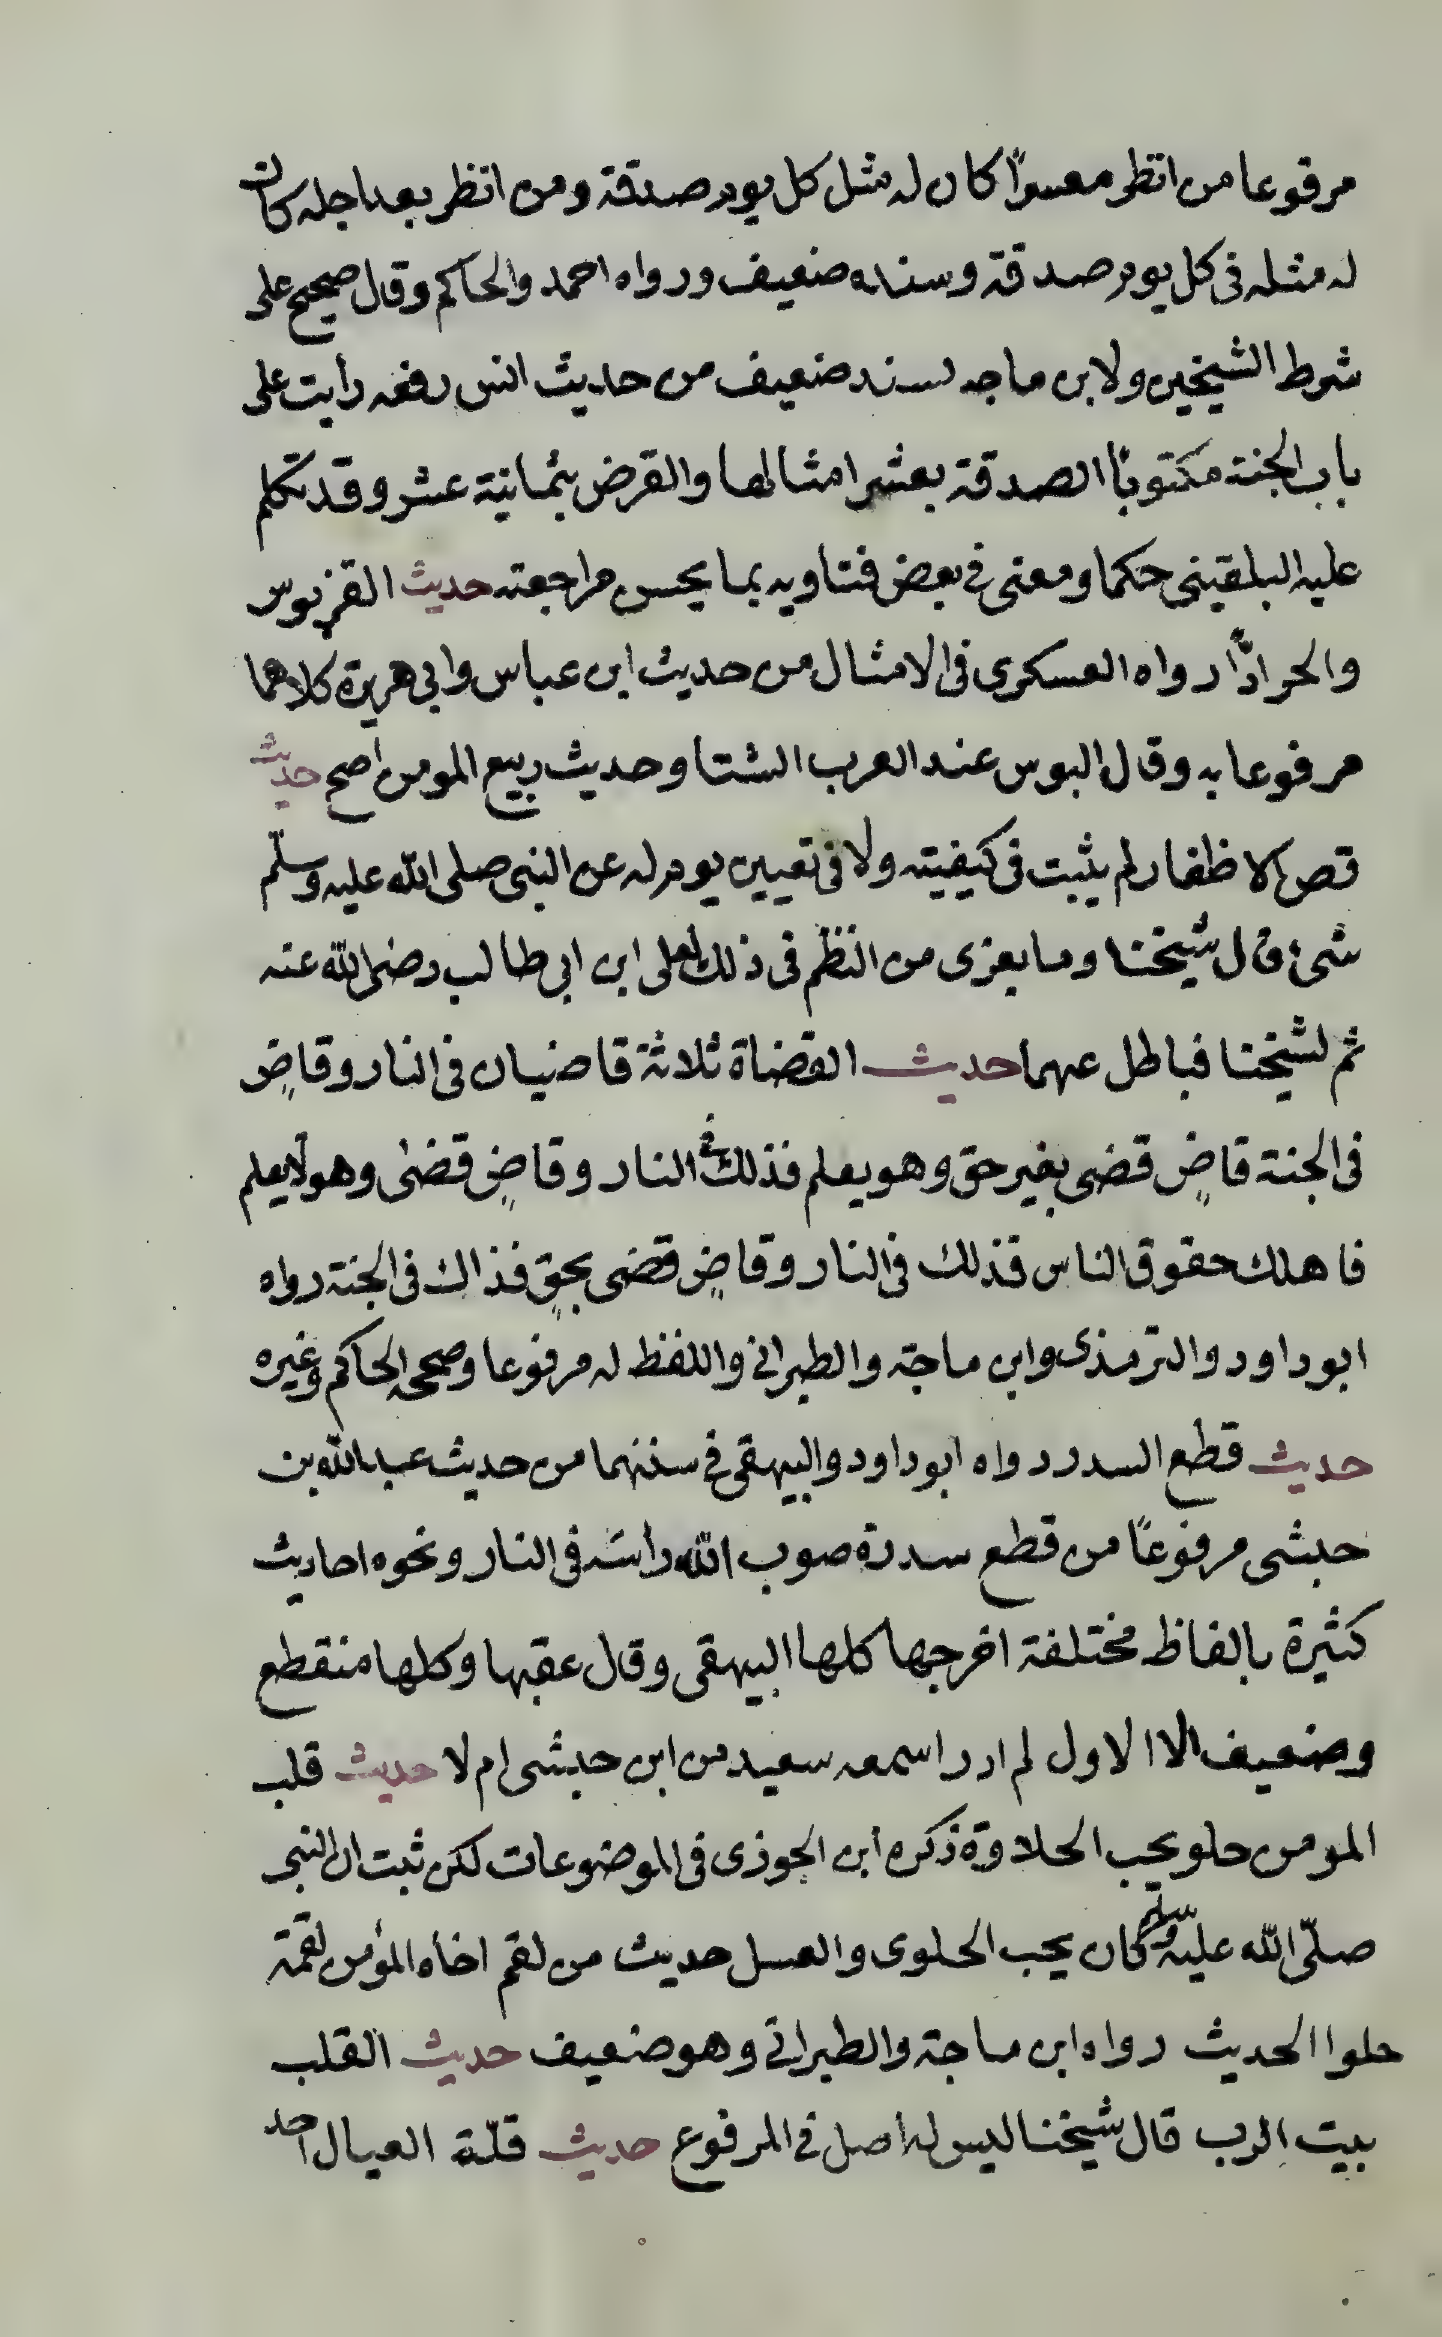 مرفوعا من انظر معسرًا كان له مثل كل يوم صدقة ومن انظر بعد اجله كان
له مثله فى كل يوم صدقة وسنده ضعيف ورواه احمد والحاكم وقال صحيح على
شرط الشيخين ولابن ماجه بسند ضعيف من حديث انس رفعه رأيت على
باب الجنة مكتوبًا الصدقة بعشر امثالها والقرض بثمانية عشر وقد تكلم
عليه البلقينى حكما ومعنى فى بعض فتاويه بما يحسن مراجعته حديث القر بوس
والحر اذًا رواه العسكرى فى الامثال من حديث ابن عباس وابى هريرة كلاهما
مرفوعا به وقال البوس عند العرب الشتا وحديث ربيع المومن اصح حديث
قص الاظفار لم يثبت فى كيفيته ولا فى تعيين يوم له عن النبى صلى الله عليه وسلم
شئ قال شيخنا وما يعزى من النظم فى ذلك لعلى ابن ابى طالب رضى الله عنه
ثم لشيخنا فباطل عنهما حديث القضاة ثلاثة قاضيان فى النار وقاضٍ
فى الجنة قاضٍ قضى بغير حق وهو يعلم فذلك فى النار وقاضٍ قضى وهو لا يعلم
فاهلك حقوق الناس فذلك فى النار وقاضٍ قضى بحقٍ فذاك فى الجنة رواه
ابو داود والترمذى وابن ماجة والطبرانى واللفظ له مرفوعا وصححه الحاكم وغيره
حديث قطع السدر رواه ابو داود والبيهقى فى سننهما من حديث عبد الله بن
حبشى مرفوعًا من قطع سدرة صوب الله رأسه فى النار ونحوه احاديث
كثيرة بالفاظ مختلفة اخرجها كلها البيهقى وقال عقبها وكلها منقطع
وضعيف الا الاول لم ادر اسمعه سعيد من ابن حبشى ام لا حديث قلب
المومن حلو يحب الحلاوة ذكره ابن الجوزى فى الموضوعات لكن ثبت ان النبى
صلّى الله عليه وسلم كان يحب الحلوى والعسل حديث من لقم اخاه المؤمن لقمة
حلوا الحديث رواه ابن ماجة والطبرانى وهو ضعيف حديث القلب
بيت الرب قال شيخنا ليس له اصل فى المرفوع حديث قلّة العيال احد